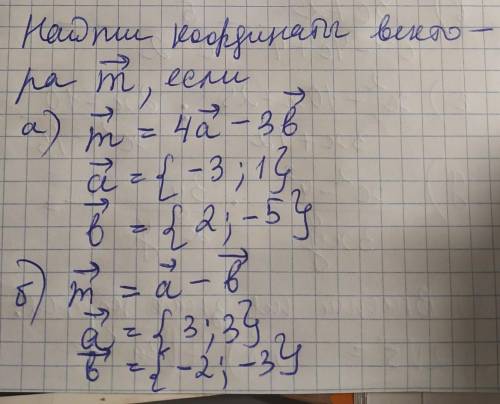 Найти координаты векто-
ра m⃗, если
а) m⃗ = 4a⃗ - 3b⃗
a⃗ = {-3; 1}
b⃗ = {2; -5}
б) m⃗ = a⃗ - b⃗
a⃗ = {3; 3}
b⃗ = {-2; -3}